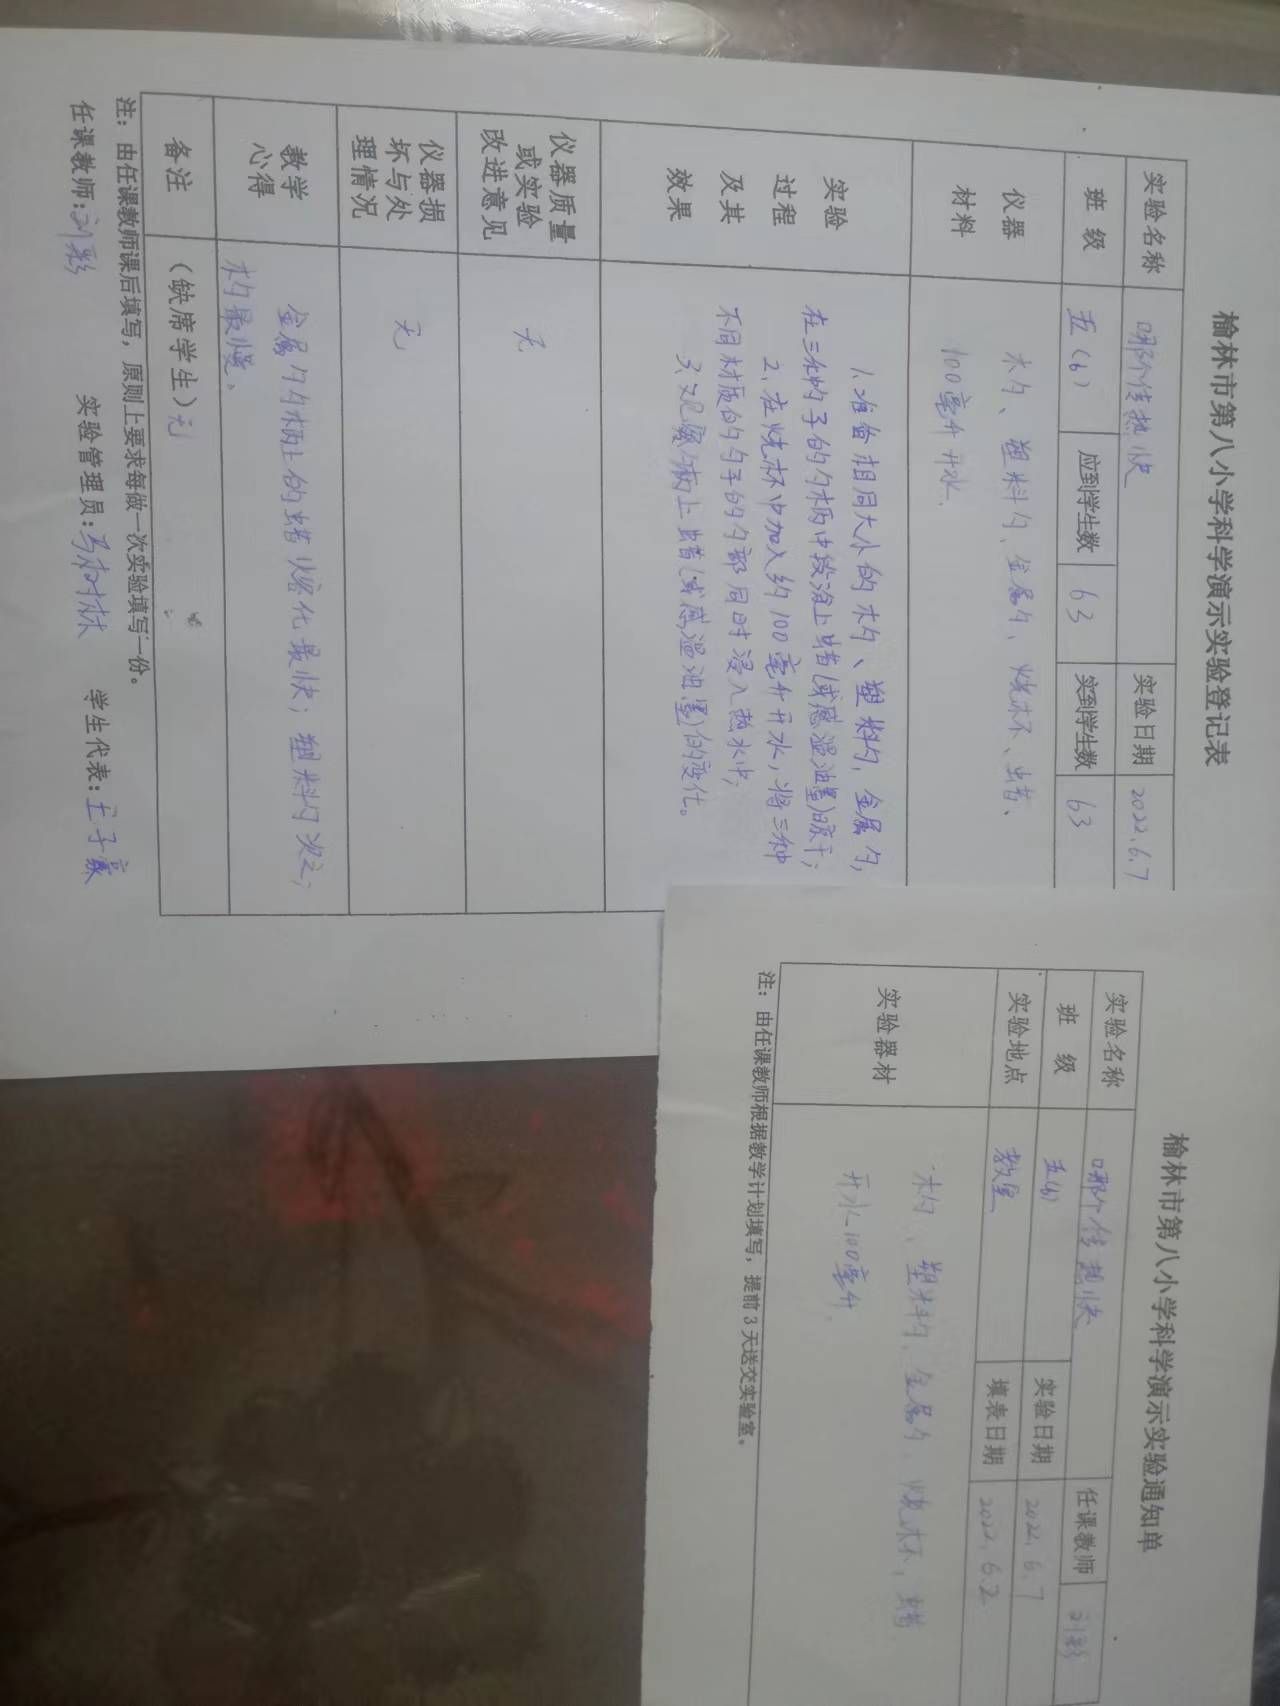 榆林市第八小学科学演示实验登记表
实验名称 哪个传热快 实验日期 2022.6.7
班 级 五(6) 应到学生数 63 实到学生数 63
仪器
材料
木勺、塑料勺、金属勺、烧杯、蜡、
100毫升开水.
实验
过程
及其
效果
1、准备相同大小的木勺、塑料勺,金属勺,
在三种勺子的勺柄中段涂上蜡(或感温油墨)晾干;
2、在烧杯中加入约100毫升开水,将三种
不同材质的勺子的勺部同时浸入热水中;
3、观察勺柄上蜡(或感温油墨)的变化。
仪器质量
或实验
改进意见
无
仪器损
坏与处
理情况
无
教学
心得
金属勺勺柄上的蜡熔化最快;塑料勺次之;
木勺最慢。
备注 (缺席学生)无
注:由任课教师课后填写,原则上要求每做一次实验填写一份。
任课教师:刘彩 实验管理员:马树林 学生代表:王子豪
榆林市第八小学科学演示实验通知单
实验名称 哪个传热快 任课教师 刘彩
班 级 五(6) 实验日期 2022.6.7
实验地点 教室 填表日期 2022.6.2
实验器材
木勺、塑料勺、金属勺、烧杯、蜡
开水100毫升
注:由任课教师根据教学计划填写,提前3天送交实验室。